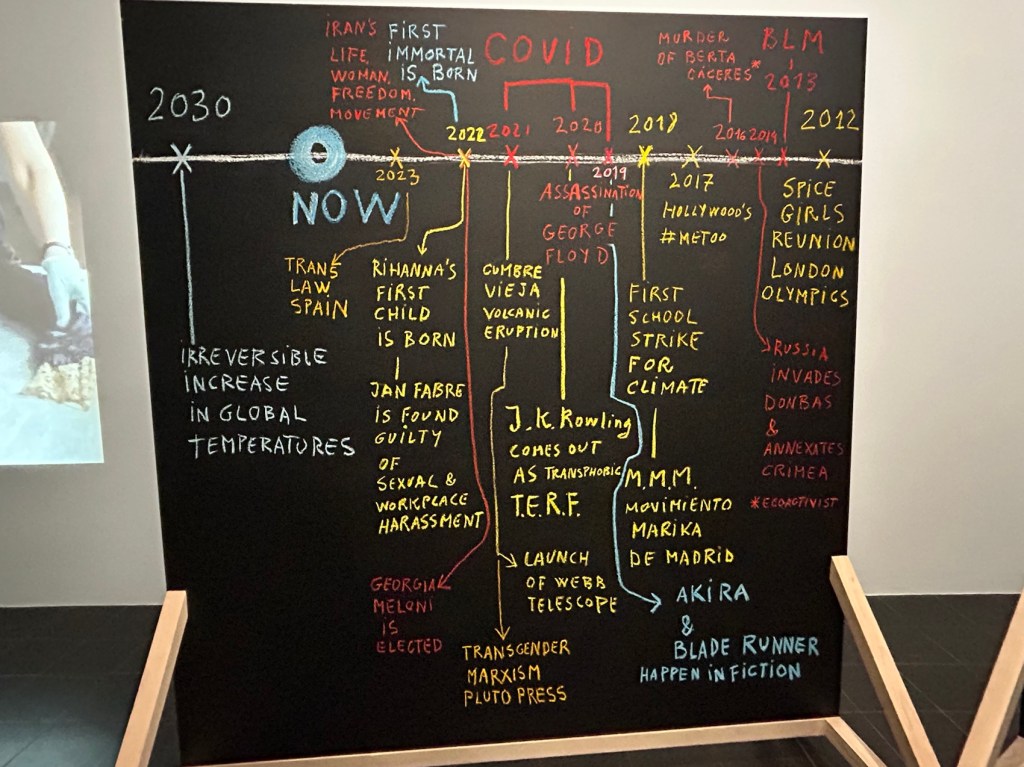 IRAN'S
LIFE,
WOMAN,
FREEDOM,
MOVEMENT
FIRST
IMMORTAL
IS BORN
COVID
MURDER
OF BERTA
CÁCERES*
BLM
2013
2030
2022
2021
2020
2018
2016
2014
2012
2023
2019
2017
NOW
TRANS
LAW
SPAIN
RIHANNA'S
FIRST
CHILD
IS BORN
JAN FABRE
IS FOUND
GUILTY
OF
SEXUAL &
WORKPLACE
HARASSMENT
GEORGIA
MELONI
IS
ELECTED
CUMBRE
VIEJA
VOLCANIC
ERUPTION
ASSASSINATION
OF
GEORGE
FLOYD
J.K. Rowling
COMES OUT
AS TRANSPHOBIC
T.E.R.F.
LAUNCH
OF WEBB
TELESCOPE
TRANSGENDER
MARXISM
PLUTO PRESS
FIRST
SCHOOL
STRIKE
FOR
CLIMATE
M.M.M.
MOVIMIENTO
MARIKA
DE MADRID
HOLLYWOOD'S
#METOO
SPICE
GIRLS
REUNION
LONDON
OLYMPICS
RUSSIA
INVADES
DONBAS
&
ANNEXATES
CRIMEA
*ECOACTIVIST
AKIRA
&
BLADE RUNNER
HAPPEN IN FICTION
IRREVERSIBLE
INCREASE
IN GLOBAL
TEMPERATURES